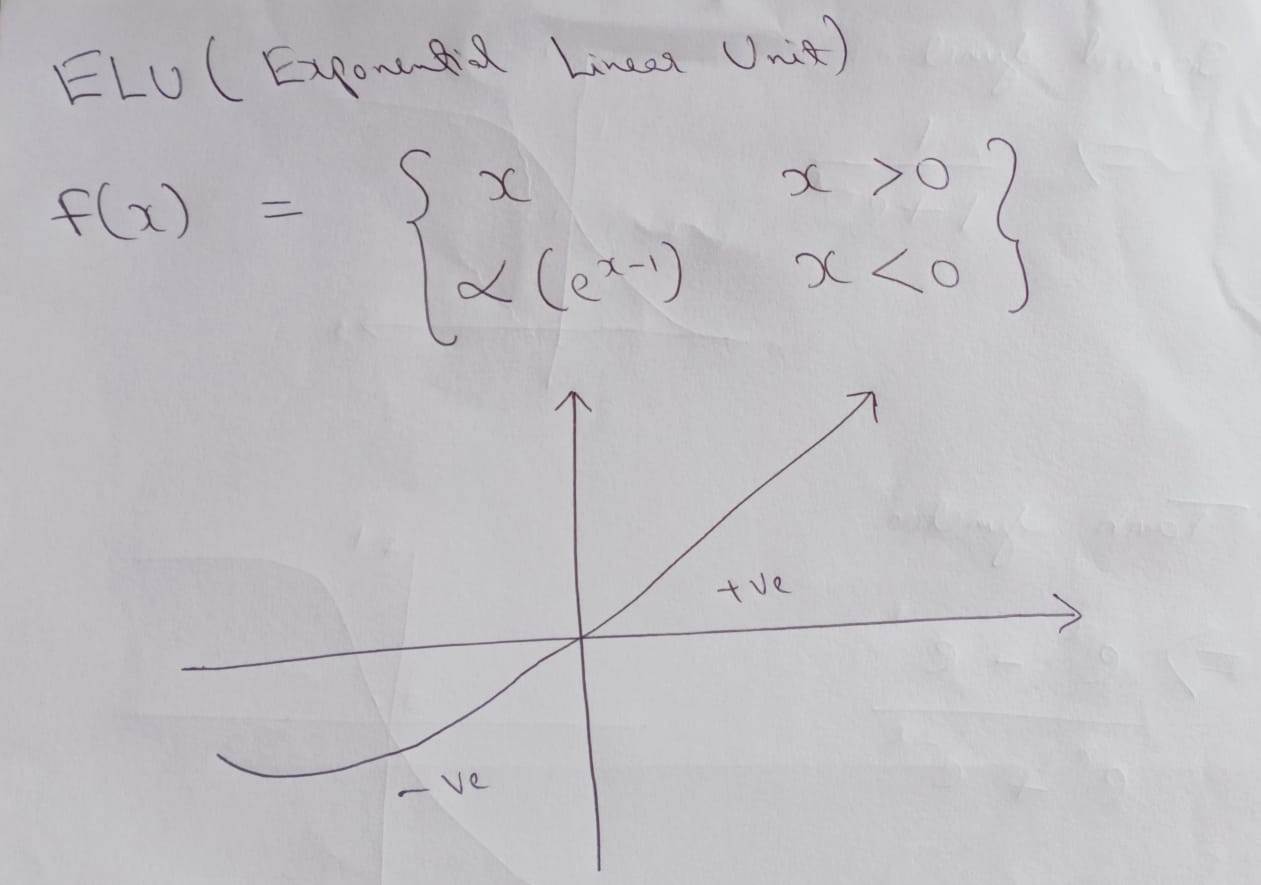 ELU ( Exponential Linear Unit)
f(x) = { x x >0 }
α (e^x-1) x <0
+ve
- ve